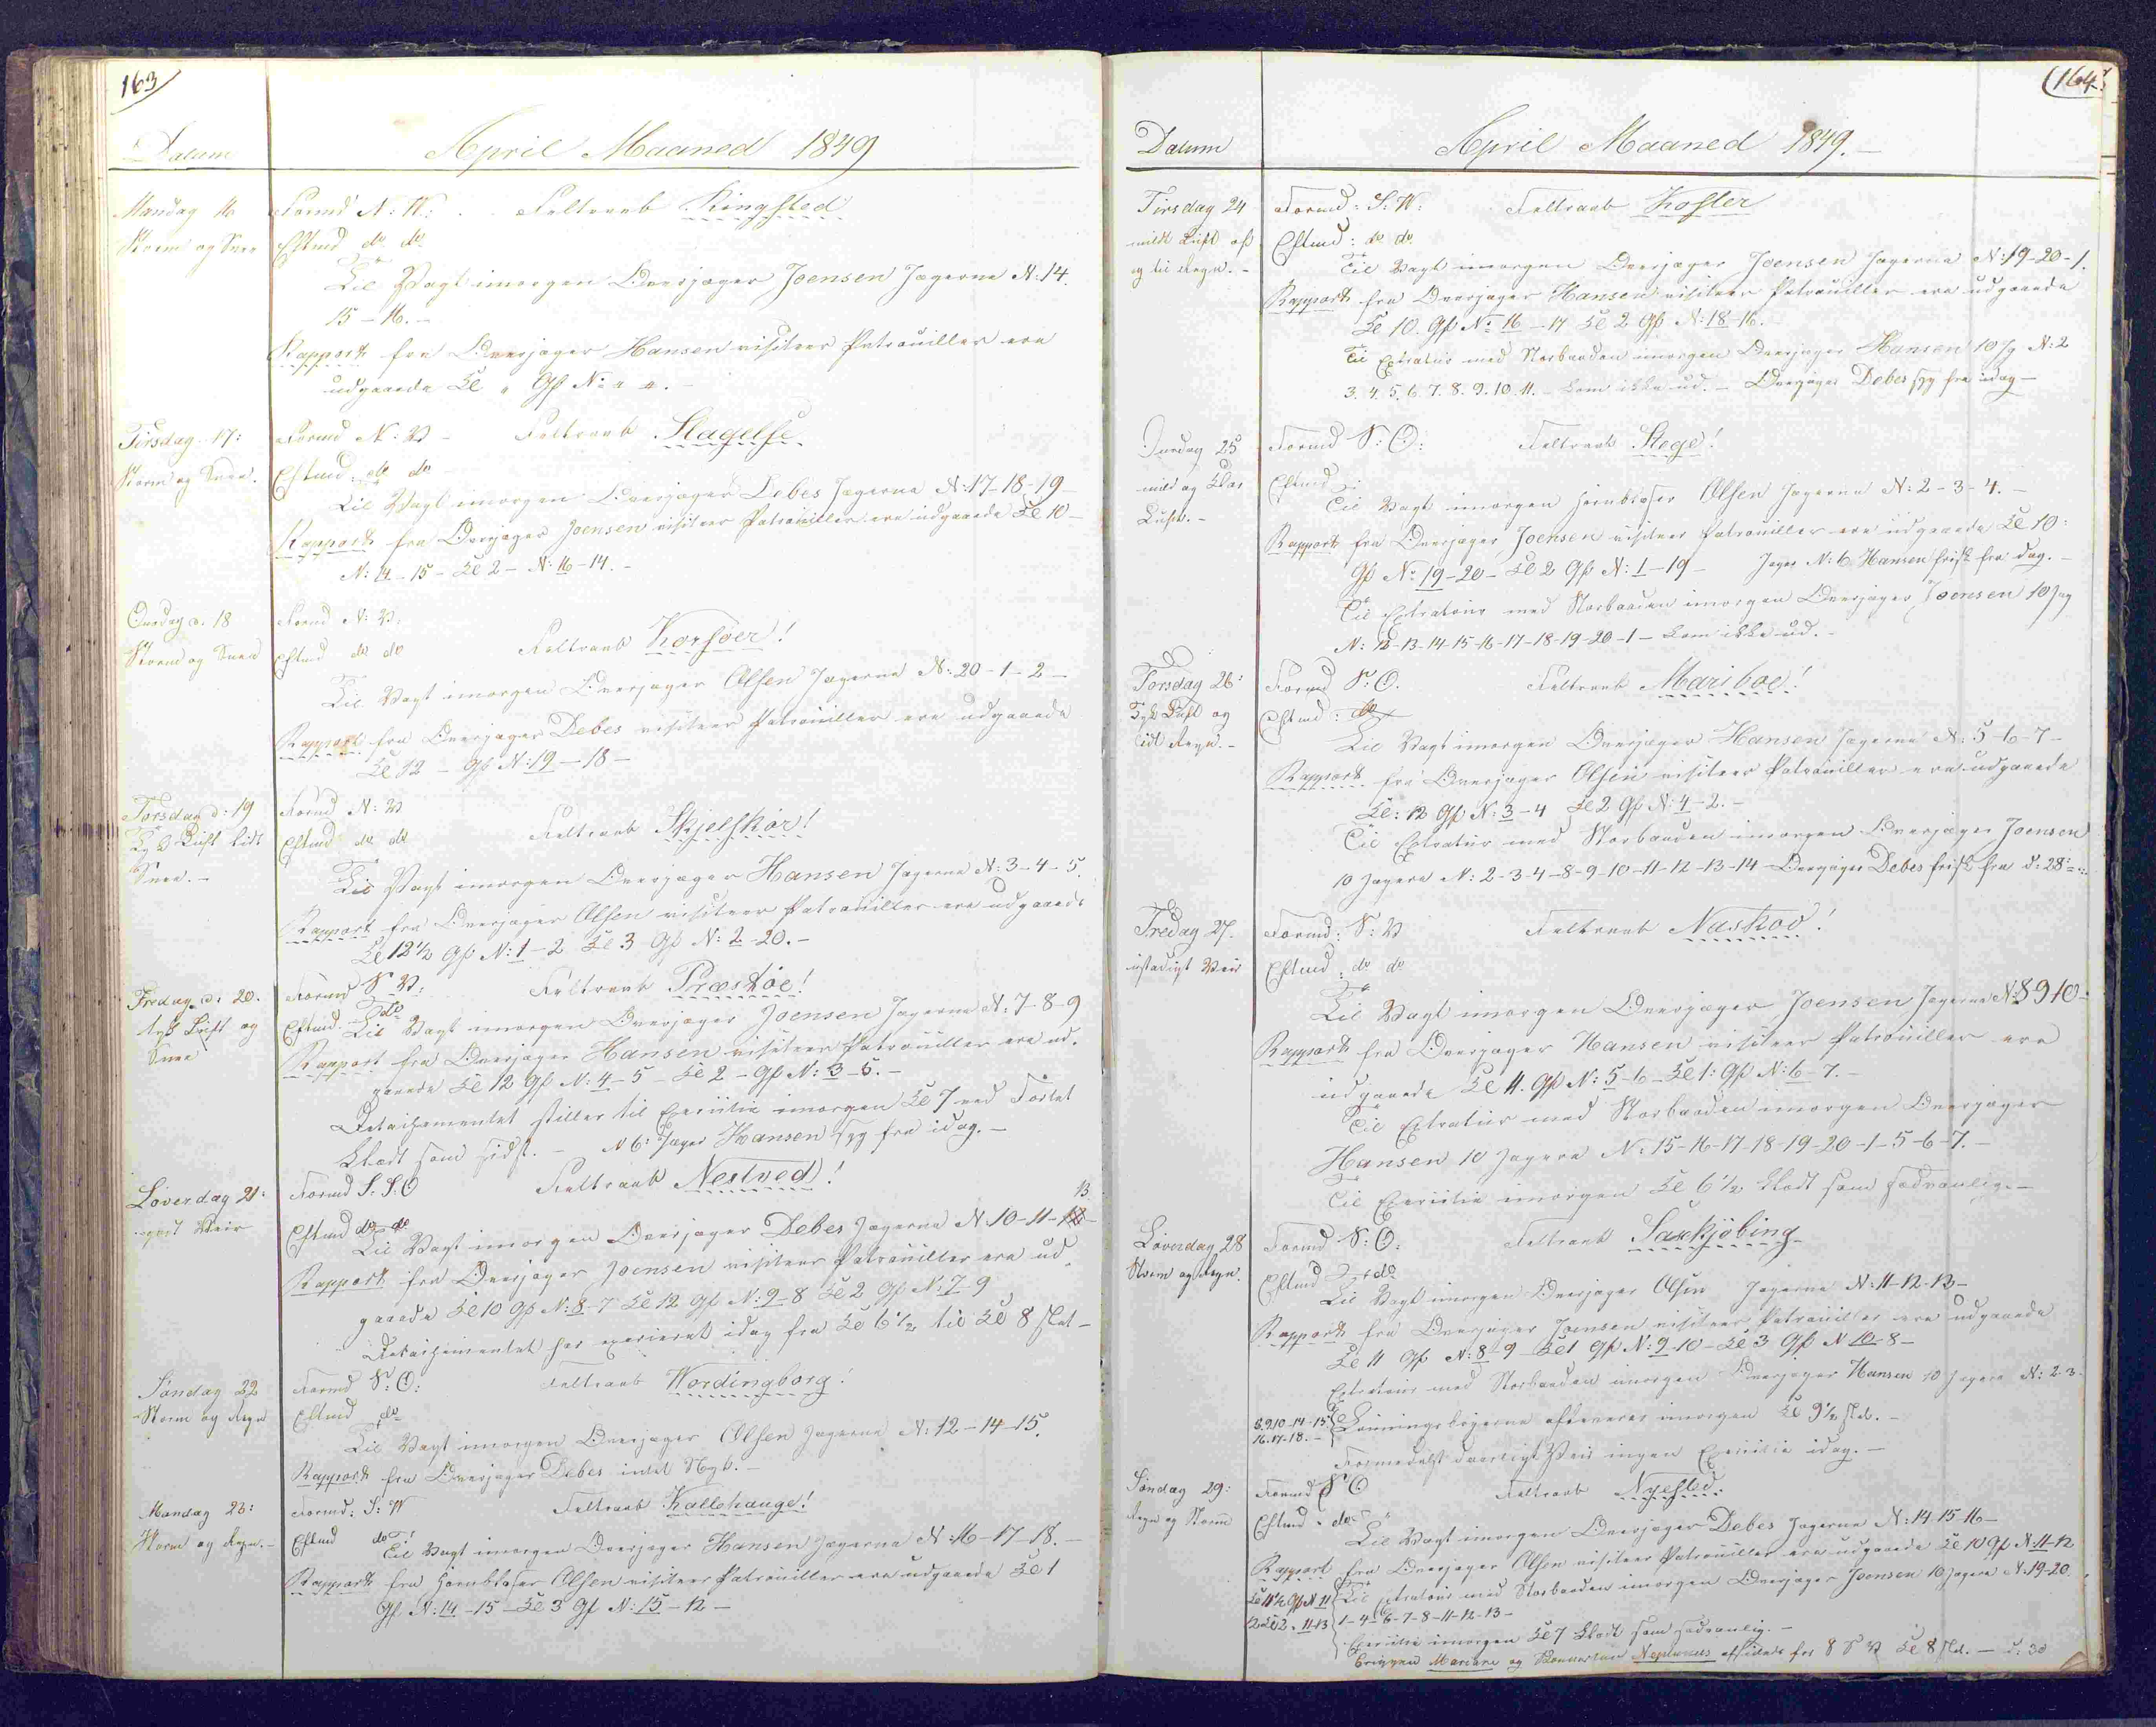 163
Datum
April Maaned 1849
Mandag 16
Storm og Snee
Formd N: W: Feltraab Ringsted
Eftmd do do
Til Vagt imorgen Overjæger Joensen Jægerne N: 14.
15 - 16. -
Rapport fra Overjæger Hansen visiteer Patrouiller ere
udgaaede Kl " Gf No " ". -
Tirsdag 17:
Storm og Snee.
Formd N: V - Feltraab Slagelse
Eftmd: do do
Til Vagt imorgen Overjæger Debes Jægerne N: 17-18-19-
Rapport fra Overjæger Joensen visiteer Patrouiller ere udgaaede Kl 10 -
N: 14 - 15 - Kl 2 - N: 16 - 14. -
Onsdag d. 18
Storm og Snee
Formd N: V:
Eftmd do do Feltraab Korsöer!
Til Vagt imorgen Overjæger Olsen Jægerne N: 20 - 1 - 2 -
Rapport fra Overjæger Debes visiteer Patrouiller ere udgaaede
Kl 12 - Gf N: 19 - 18 -
Torsdag d: 19
Tyk Luft lidt
Snee. -
Formd N: V
Eftmd do do Feltraab Skjelskör!
Til Vagt imorgen Overjæger Hansen Jægerne N: 3 - 4 - 5.
Rapport fra Overjæger Olsen visiteer Patrouiller ere udgaaede
Kl 12½ Gf N: 1 - 2 Kl 3 Gf N: 2 - 20. -
Fredag d: 20.
tyk Luft og
Snee
Formd S V: Feltraab Præstöe!
Eftmd. do
Til Vagt imorgen Overjæger Joensen Jægerne N: 7 - 8 - 9
Rapport fra Overjæger Hansen visiteer Patrouiller ere ud-
gaaede Kl 12 Gf N: 4 - 5 - Kl 2 - Gf N: 3 - 5. -
Detaschementet stiller til Exercitie imorgen Kl 7 ved Fortet
klædt som sidst. - N 6: Jæger Hansen syg fra idag. -
Löverdag 21:
godt Veir
Formd S: S: O Feltraab Nestved!
Eftmd do do
Til Vagt imorgen Overjæger Debes Jægerne N 10 - 11 - 13
Rapport fra Overjæger Joensen visiteer Patrouiller ere ud-
gaaede Kl 10 Gf N: 8 - 7 Kl 12 Gf N: 9 - 8 Kl 2 Gf N: 7 - 9
Detaschementet har exerceret idag fra Kl 6½ til Kl 8 slet -
Söndag 22
Storm og Regn
Formd S: O: Feltraab Wordingborg.
Eftmd do
Til Vagt imorgen Overjæger Olsen Jægerne N: 12 - 14 - 15.
Rapport fra Overjæger Debes intet Nyt. -
Mandag 23:
Storm og Regn. -
Formd: S: W Feltraab Kallehauge!
Eftmd do
Til Vagt imorgen Overjæger Hansen Jægerne N: 16 - 17 - 18. -
Rapport fra Hornblæser Olsen visiteer Patrouiller ere udgaaede Kl 1
Gf N: 14 - 15 - Kl 3 Gf N: 15 - 12 -
164
Datum
April Maaned 1849. -
Tirsdag 24
mildt Luft af
og til Regn. -
Formd: S: W: Feltraab Koster
Eftmd: do do
Til Vagt imorgen Overjæger Joensen Jægerne N: 19 - 20 - 1.
Rapport fra Overjæger Hansen visiteer Patrouiller ere udgaaede
Kl 10. Gf No 16 - 17 Kl 2 Gf N: 18 - 16. -
Til Extratour med Storbaaden imorgen Overjæger Hansen 10 Jg N: 2
3. 4. 5. 6. 7. 8. 9. 10. 11. - kom ikke ud. - Overjæger Debes syg fra idag -
Onsdag 25
mild og klar
Luft. -
Formd S: O: Feltraab Stege!
Eftmd
Til Vagt imorgen Hornblæser Olsen Jægerne N: 2 - 3 - 4. -
Rapport fra Overjæger Joensen visiteer Patrouiller ere udgaaede Kl 10:
Gf No 19 - 20 - Kl 2 Gf N: 1 - 19 - Jæger N: 6 Hansen frisk fra dag. -
Til Extratour med Storbaaden imorgen Overjæger Joensen 10 Jæg
N: 12 - 13 - 14 - 15 - 16 - 17 - 18 - 19 - 20 - 1 - kom ikke ud. -
Torsdag 26:
Tyk Luft og
lidt Regn. -
Formd S: O. Feltraab Mariboe!
Eftmd: do
Til Vagt imorgen Overjæger Hansen Jægerne N: 5 - 6 - 7 -
Rapport fra Overjæger Olsen visiteer Patrouiller ere udgaaede
Kl: 12 Gf N: 3 - 4 Kl 2 Gf N: 4 - 2. -
Til Extratour med Storbaaden imorgen Overjæger Joensen
10 Jægere N: 2 - 3 - 4 - 8 - 9 - 10 - 11 - 12 - 13 - 14 Overjæger Debes frisk fra d: 28
Fredag 27.
ustadigt Veir
Formd: S: V Feltraab Naskov!
Eftmd: do do
Til Vagt imorgen Overjæger Joensen Jægerne N: 8 9 10 -
Rapport fra Overjæger Hansen visiteer Patrouiller ere
udgaaede Kl 11. Gf N: 5 - 6 - Kl 1: Gf N: 6 - 7. -
Til Extratour med Storbaaden imorgen Overjæger
Hansen 10 Jægere N: 15 - 16 - 17 - 18 - 19 - 20 - 1 - 5 - 6 - 7. -
Til Exercitie imorgen Kl 6½ klædt som sædvanlig. -
Löverdag 28
Storm og Regn.
Formd S: O: Feltraab Saxkjöbing
Eftmd do
Til Vagt imorgen Overjæger Olsen Jægerne N: 11 - 12 - 13 -
Rapport fra Overjæger Joensen visiteer Patrouiller ere udgaaede
Kl 11 Gf N: 8 - 9 Kl 1 Gf N: 9 - 10 - Kl 3 Gf N 10 - 8 -
Extratour med Storbaaden imorgen Overjæger Hansen 10 Jægere N: 2 - 3 -
8. 9. 10 - 14 - 15
16. 17. 18. -
Lönningsbögerne afleveres imorgen Kl 9½ slet. -
Formedelst daarligt Veir ingen Exercitie idag. -
Söndag 29:
Regn og Storm
Formd S O Feltraab Nyested.
Eftmd " do
Til Vagt imorgen Overjæger Debes Jægerne N: 14 15 16 -
Rapport fra Overjæger Olsen visiteer Patrouiller ere udgaaede Kl 10 Gf N: 11 - 12
Kl 11½ Gf N 11
12 Kl 2 " 11 - 13
Til Extratour med Storbaaden imorgen Overjæger Joensen 10 Jægere N: 19 - 20.
1 - 4 - 6 - 7 - 8 - 11 - 12 - 13 -
Exercitie imorgen Kl 7 klædt som sædvanlig. -
Briggen Mariane og Skonnerten Neptunus afseilede for S V Kl 8 slet. - d: 30